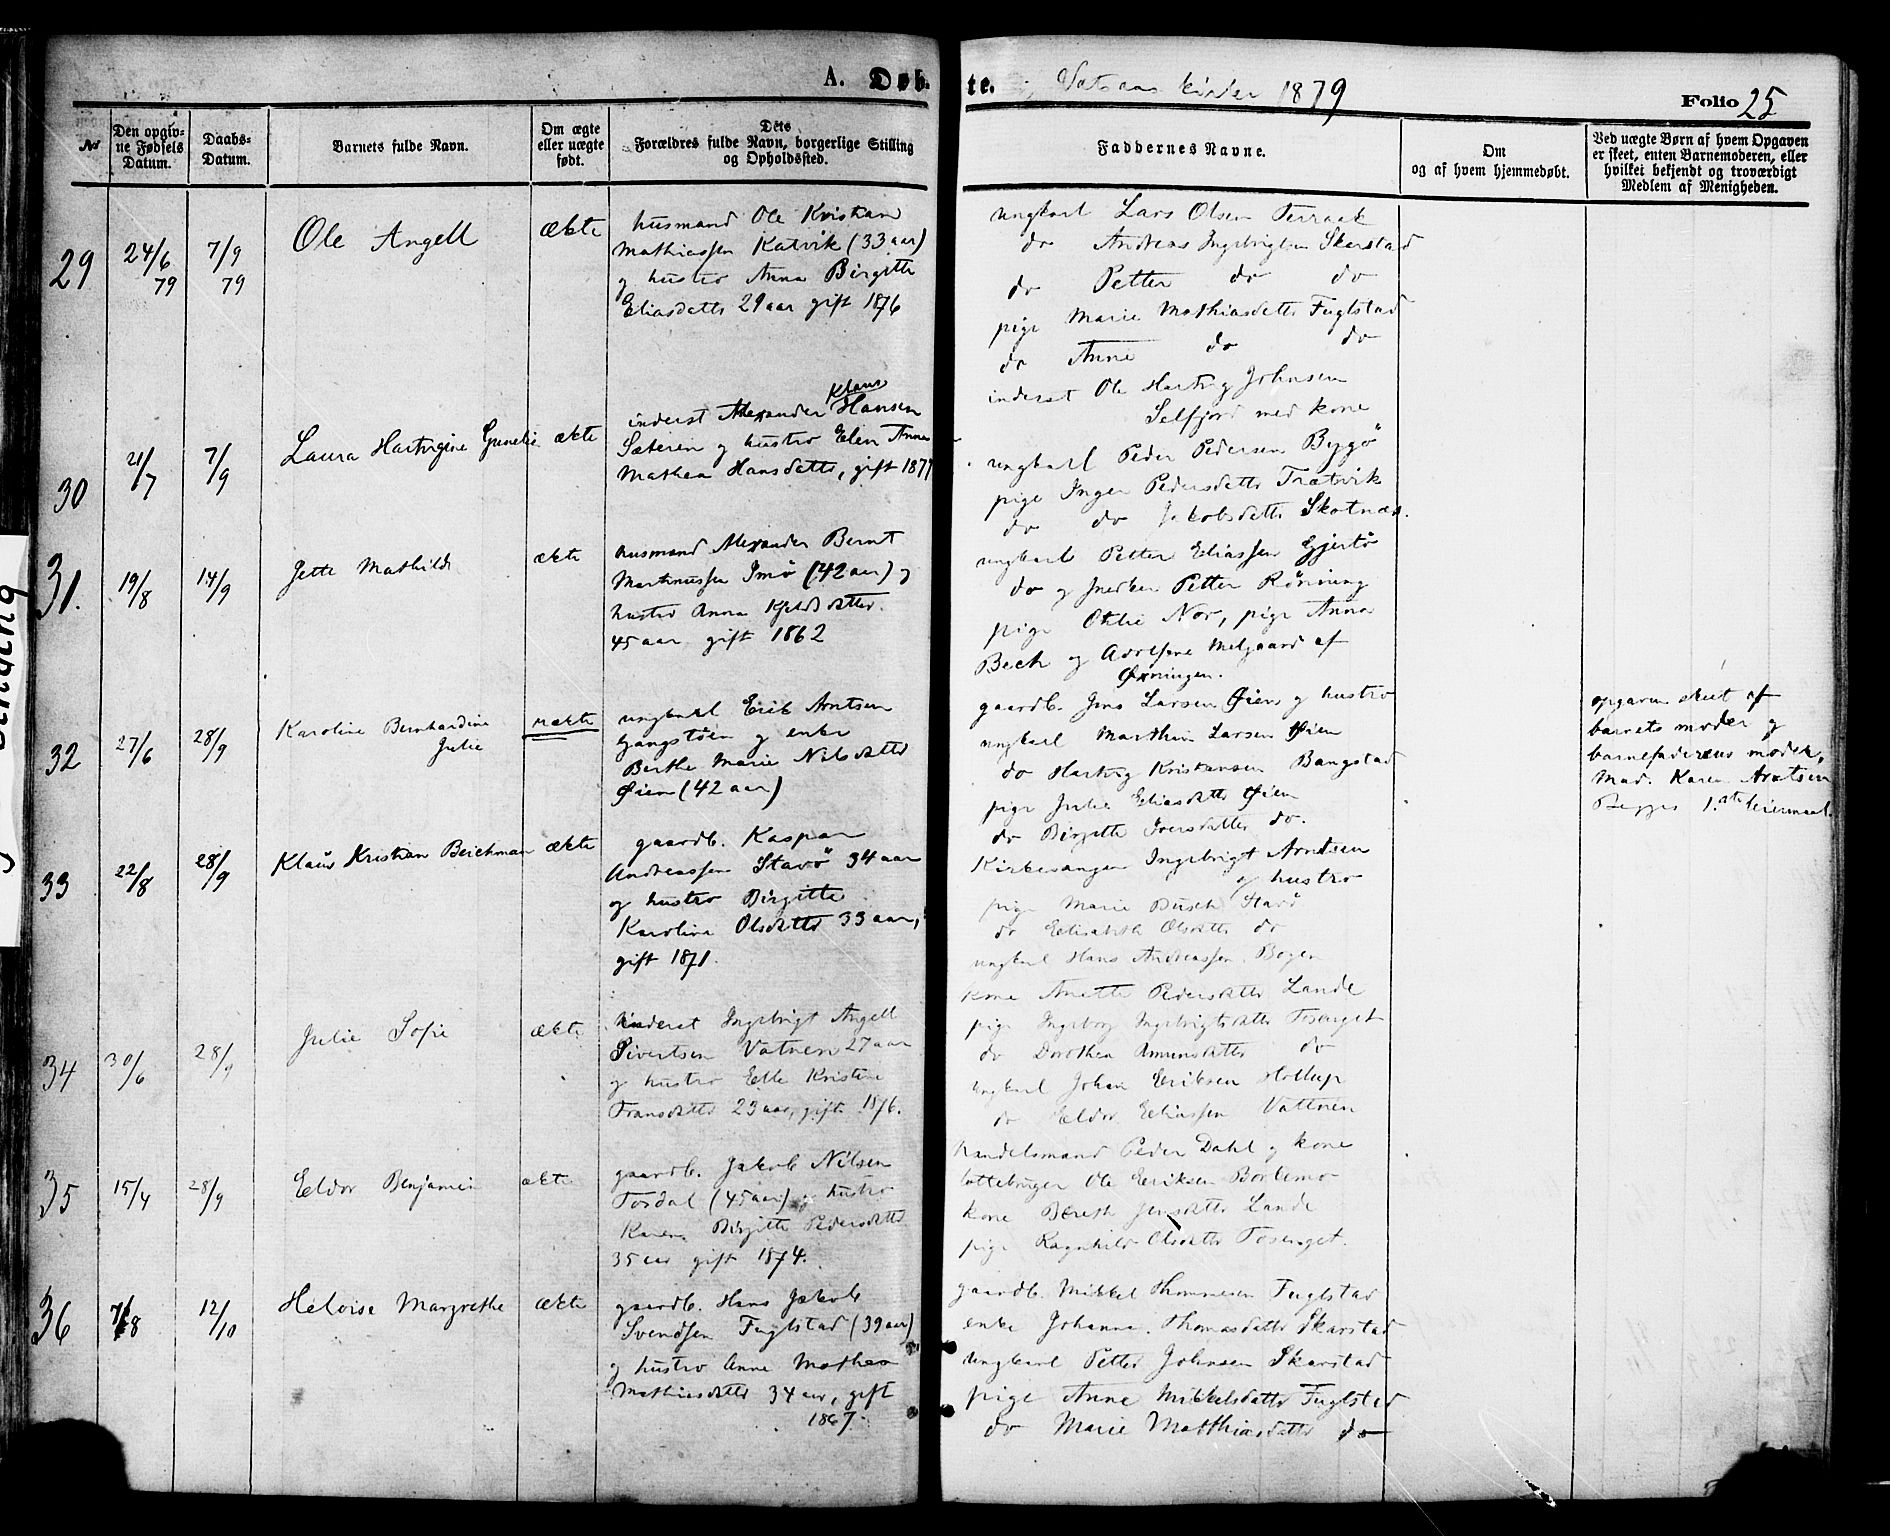 A. Døb-
te. Vatsaas kirke 1879
Folio 25
No
Den opgivne Fødsels Datum.
Daabs-Datum.
Barnets fulde Navn.
Om ægte eller uægte født.
Dets Forældres fulde Navn, borgerlige Stilling og Opholdssted.
Faddernes Navne.
Om og af hvem hjemmedøbt.
Ved uægte Børn af hvem Opgaven er skeet, enten Barnemoderen, eller hvilkei bekjendt og troværdigt Medlem af Menigheden.
29
24/6 79
7/9 79
Ole Angell
ækte
husmand Ole Kristian
Mathiassen Katvik (33 aar)
og hustro Anna Birgitte
Eliasdatts 29 aar gift 1876
ungkarl Lars Olsen Terraak
do Andreas Ingebrigtsen Skarstad
do Petter do do
pige Marie Mathiasdatts Fuglstad
do Anne do do
inderst Ole Hartvig Johnsen
Selfjord med kone
30
21/7
7/9
Laura Hartvigine Gunelie
ækte
Klaus
inderst Alexander Hansen
Sæteren og hustro Elen Anna
Mathea Hansdatts, gift 187
ungkarl Peder Pedersen Bygö
pige Inger Pedersdatts Trætvik
do do Jakobsdatts Skotnæs.
31.
19/8
14/9
Jette Mathilde
ækte
husmand Alexander Bernt
Martinussen Imö (42 aar) og
hustro Anna Kjeldsdatter
45 aar gift 1862
ungkarl Petter Eliassen Gjertö
do og snedker Petter Rönning
pige Otelie Nor, pige Anna
Bech og Adolfine Melgaard af
Øxningen.
32
27/6
28/9
Karoline Bernhardine
Julie
uækte
ungkarl Erik Arntsen
Gangstöen og enke
Berthe Marie Nilsdatts
Øien (42 aar)
gaardb. Jens Larsen Øien og hustro
ungkarl Marthin Larsen Øien
do Hartvig Kristensen Bangstad
pige Julie Eliasdatts Øien
do Birgitte Iversdatts do.
opgaven skeet af
barnets moder og
barnefaderens moder,
Mad. Karen Arntsen
Begges 1.ste leiermaal.
33
22/8
28/9
Klaus Kristian Beichman
ækte
gaardb. Kaspar
Andreassen Stavö 34 aar
og hustro Birgitte
Karoline Olsdatts 33 aar,
gift 1871.
Kirkesanger Ingebrigt Arntsen
og hustro
pige Marie Busch Stavö
do Elisabeth Olsdatts do
ungkarl Hans Andreassen Bogen
34
30/6
28/9
Julie Sofie
ækte
inderst Ingebrigt Angell
Sivertsen Vatnen 27 aar
og hustro Elle Kristine
Fransdatts 23 aar, gift 1876.
kone Anette Pedersdatts Lande
pige Ingeborg Ingebrigtsdatts Tosenget
do Dorothea Amunsdatts do
ungkarl Johan Eriksen Hollup
do Eldor Eliassen Vattnen
35
15/4
28/9
Eldor Benjamin
ækte
gaardb. Jakob Nilsen
Tosdal (45 aar) og hustro
Karen Birgitte Pedersdatts
35 aar gift 1874.
handelsmand Peder Dahl og kone
lottebruger Ole Eriksen Borkmo
kone Bereth Jensdatts Lande
pige Ragnhild Olsdatts Tosenget.
36
7/8
12/10
Heloise Margrethe
ækte
gaardb. Hans Jakob
Svendsen Fuglstad (39 aar)
og hustro Anne Mathea
Mathiasdatts 34 aar, gift
1867.
gaardb. Mikkel Thommesen Fuglstad
enke Johanne Thomasdatts Skarstad
ungkarl Petter Johnsen Skarstad
pige Anne Mikkelsdatts Fuglstad
do Marie Matthiasdatts do